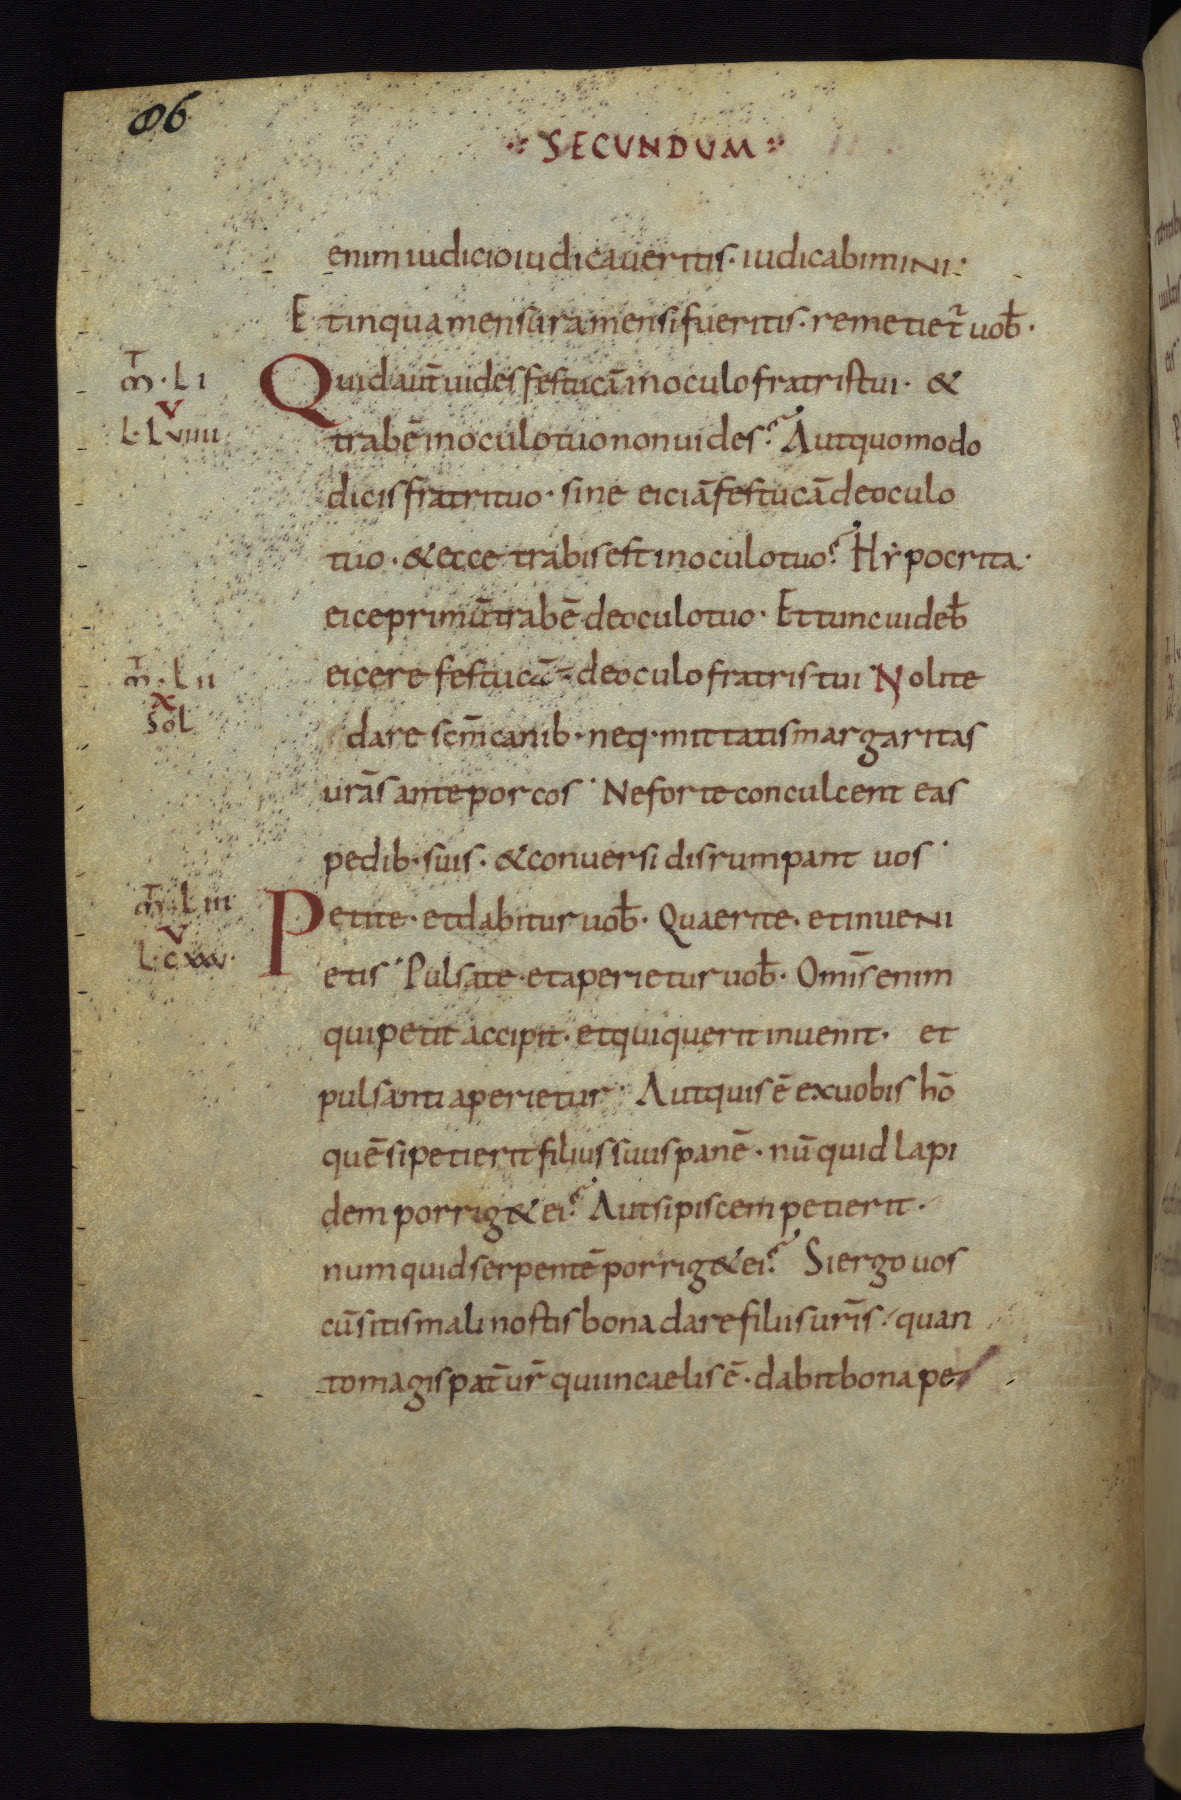 86
SECUNDUM
enim iudicio iudicaveritis· iudicabimini·
Et in qua mensura mensi fueritis· remetiet᷑ uob̄·
m̄· LI
V
L· LVIIII
Quid aut̄ uides festucā in oculo fratris tui· &
trabē in oculo tuo non uides? Aut quomodo
dicis fratri tuo· sine eiciā festucā de oculo
tuo· & ecce trabis est in oculo tuo? Hẏpocrita·
eice primū trabē de oculo tuo· Et tunc uideb̄
m̄· LII
X
SOL
eicere festucā de oculo fratris tui· Nolite
dare scm̄ canib· neq· mittatis margaritas
urās ante porcos· Ne forte conculcent eas
pedib· suis· & conuersi disrumpant uos·
m̄· LIII
V
L· CXXV·
Petite· et dabitur uob̄· Quaerite· et inueni
etis· Pulsate· et aperietur uob̄· Omīs enim
qui petit accipit· et qui querit inuenit· et
pulsanti aperietur· Aut quis ē ex uobis hō
quē si petierit filius suus panē· nū quid lapi
dem porrig& ei? Aut si piscem petierit·
numquid serpentē porrig& ei? Si ergo uos
cū sitis mali nostis bona dare filiis urīs· quan
to magis pat̄ ur̄ qui in caelis ē· dabit bona pe